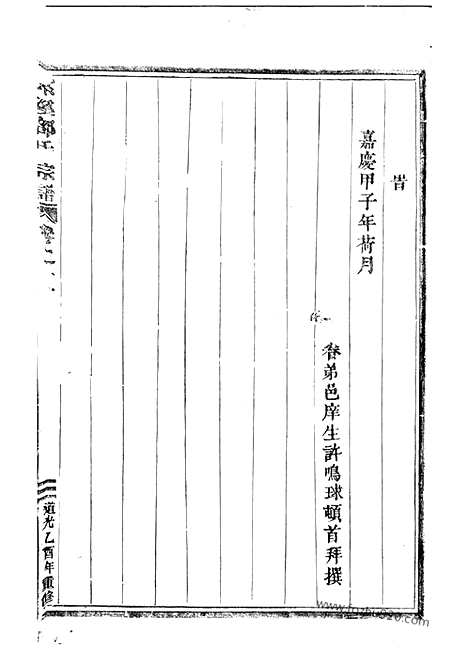 時
嘉慶甲子年荷月
眷弟邑庠生許鳴球頓首拜撰
氏宗譜
卷二
道光乙酉年重修